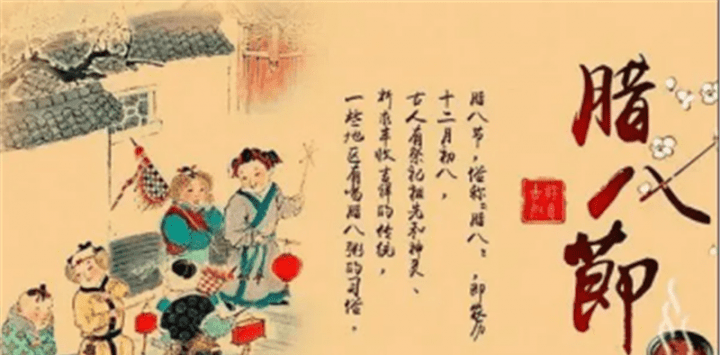 腊八节
腊八节,俗称“腊八”,即农历
十二月初八,
古人有祭祀祖先和神灵、
祈求丰收吉祥的传统,
一些地区有喝腊八粥的习俗。